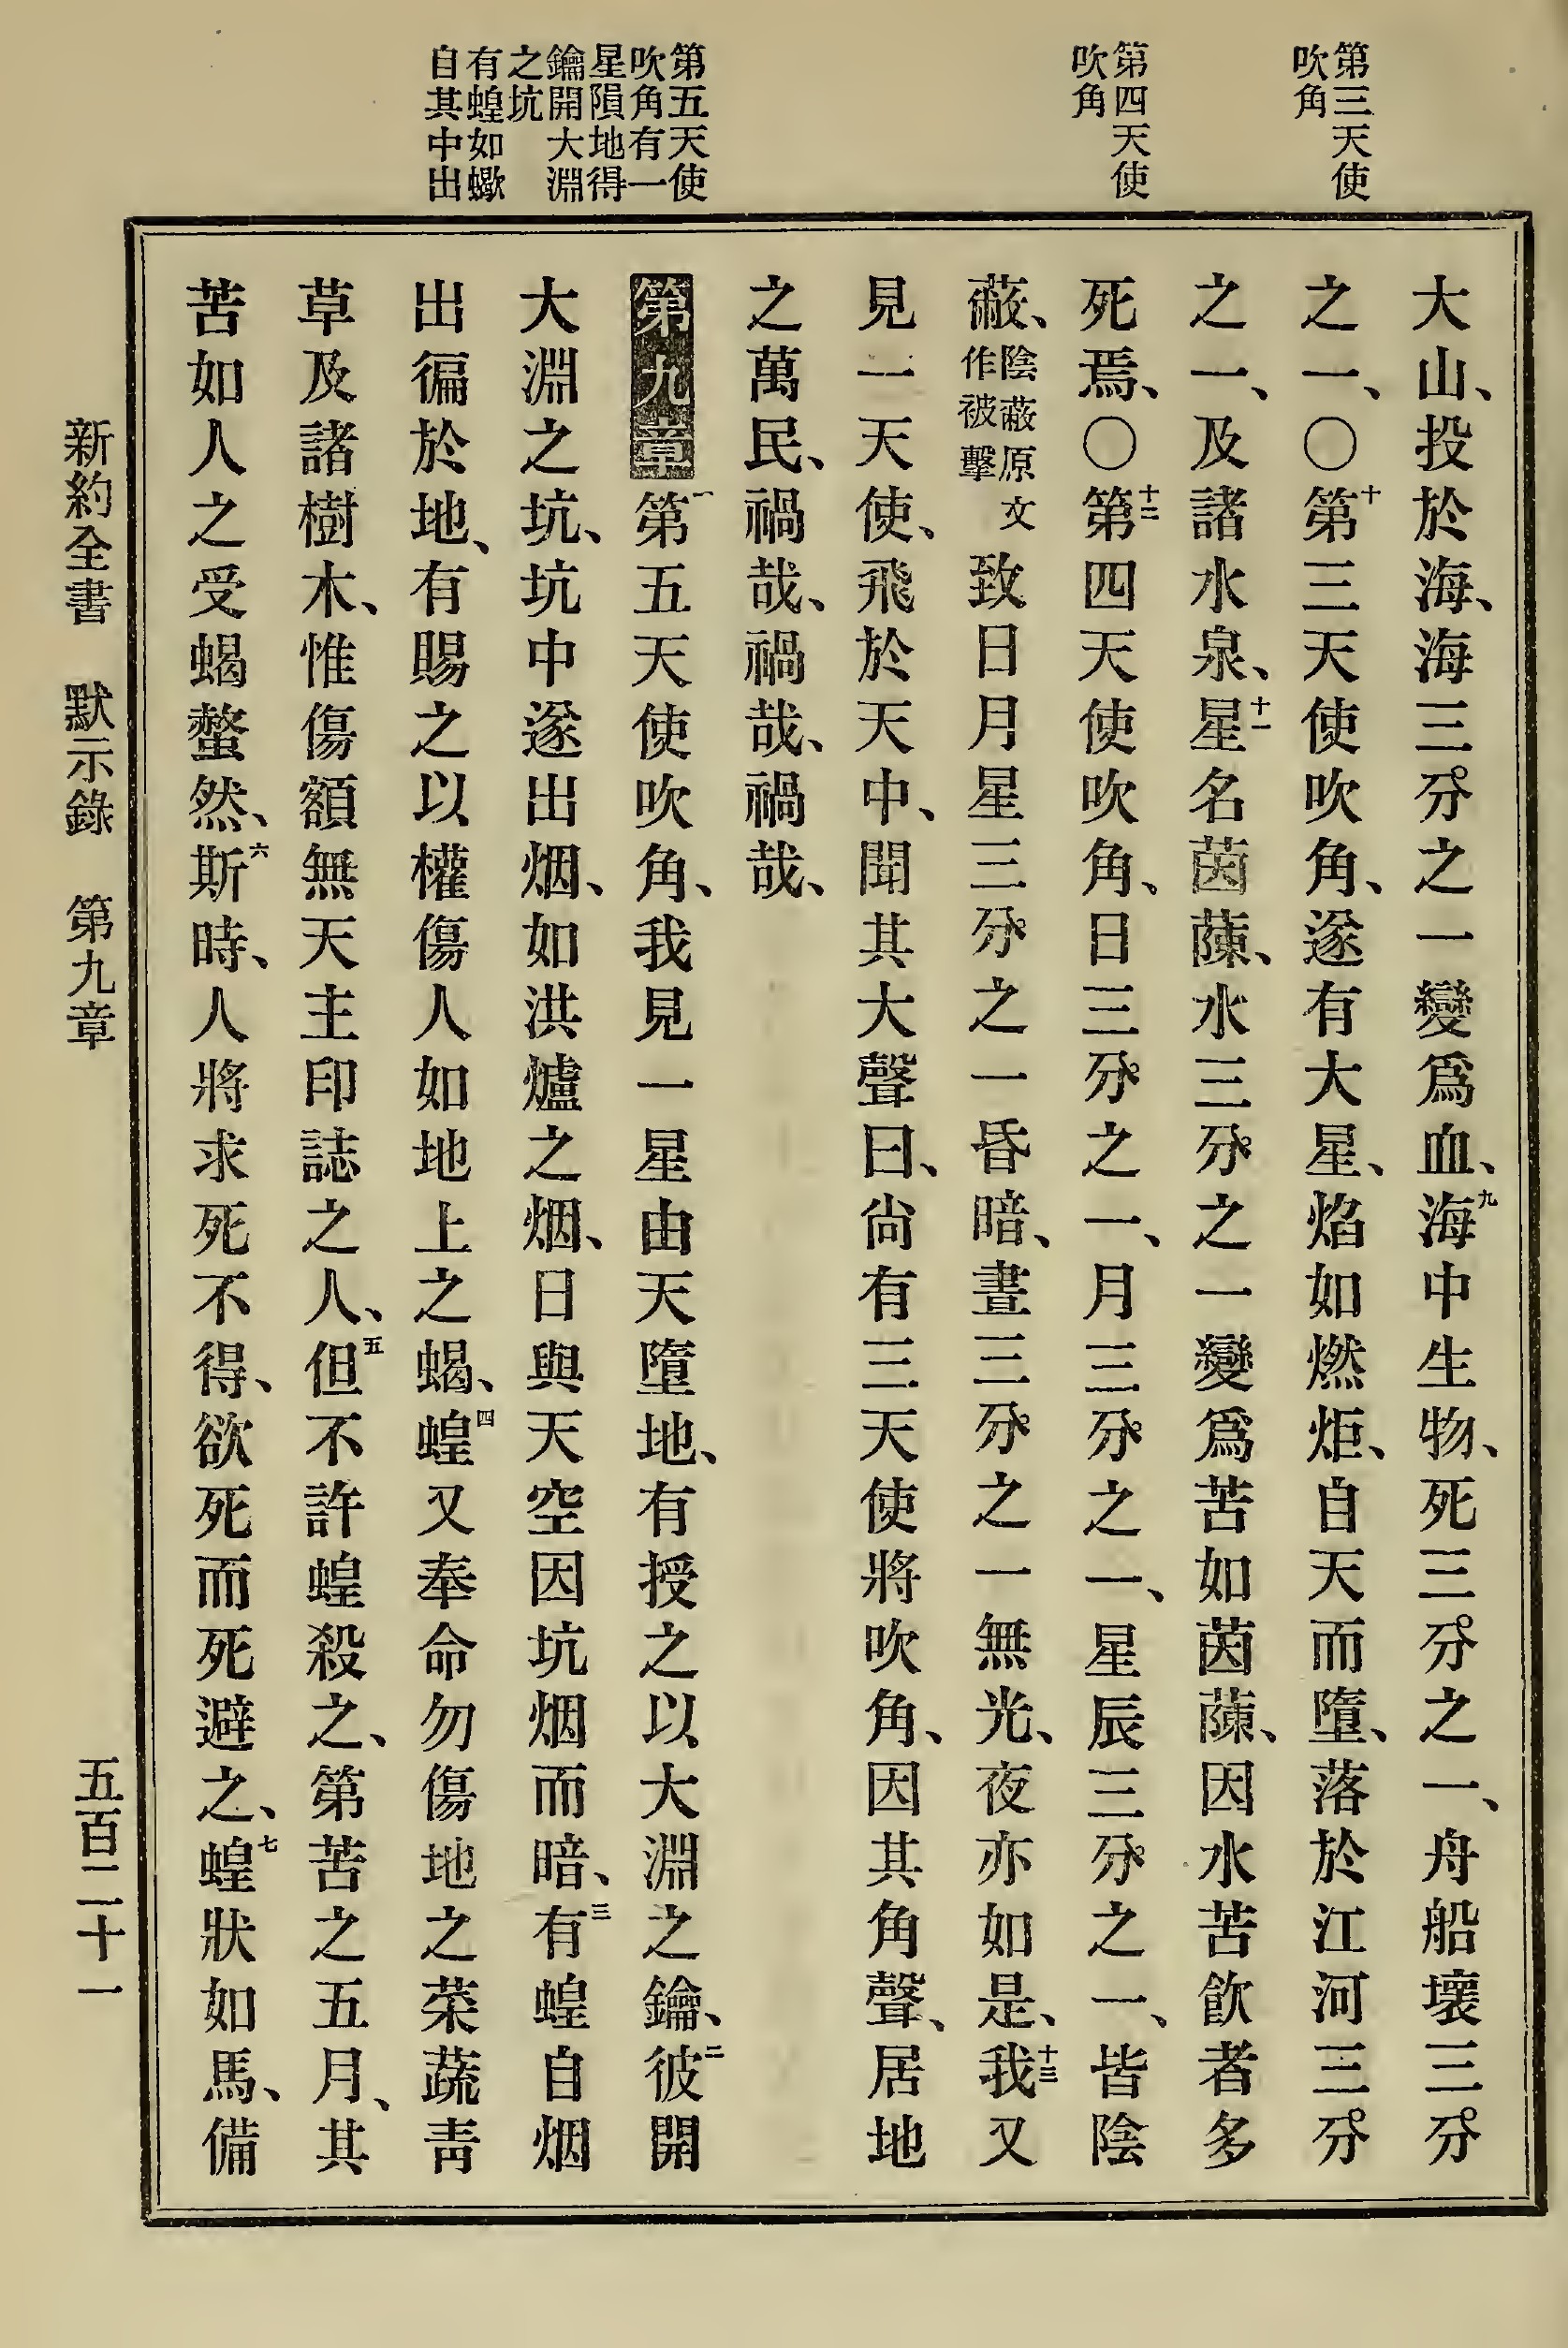 第三天使
吹角
第四天使
吹角
第五天使
吹角有一
星隕地得
鑰開大淵
之坑
有蝗如蠍
自其中出
大山、投於海、海三分之一變爲血、九海中生物、死三分之一、舟船壞三分
之一、〇十第三天使吹角、遂有大星、焰如燃炬、自天而墮、落於江河三分
之一、及諸水泉、十一星名茵蔯、水三分之一變爲苦如茵蔯、因水苦飮者多
死焉、〇十二第四天使吹角、日三分之一、月三分之一、星辰三分之一、皆陰
蔽、陰蔽原文作被擊致日月星三分之一昏暗、晝三分之一無光、夜亦如是、十三我又
見一天使、飛於天中、聞其大聲曰、尙有三天使將吹角、因其角聲、居地
之萬民、禍哉、禍哉、禍哉、
第九章一第五天使吹角、我見一星由天墮地、有授之以大淵之鑰、二彼開
大淵之坑、坑中遂出烟、如洪爐之烟、日與天空因坑烟而暗、三有蝗自烟
出徧於地、有賜之以權傷人如地上之蝎、四蝗又奉命勿傷地之菜蔬靑
草及諸樹木、惟傷額無天主印誌之人、五但不許蝗殺之、第苦之五月、其
苦如人之受蝎螫然、六斯時、人將求死不得、欲死而死避之、七蝗狀如馬、備
新約全書 默示錄 第九章 五百二十一